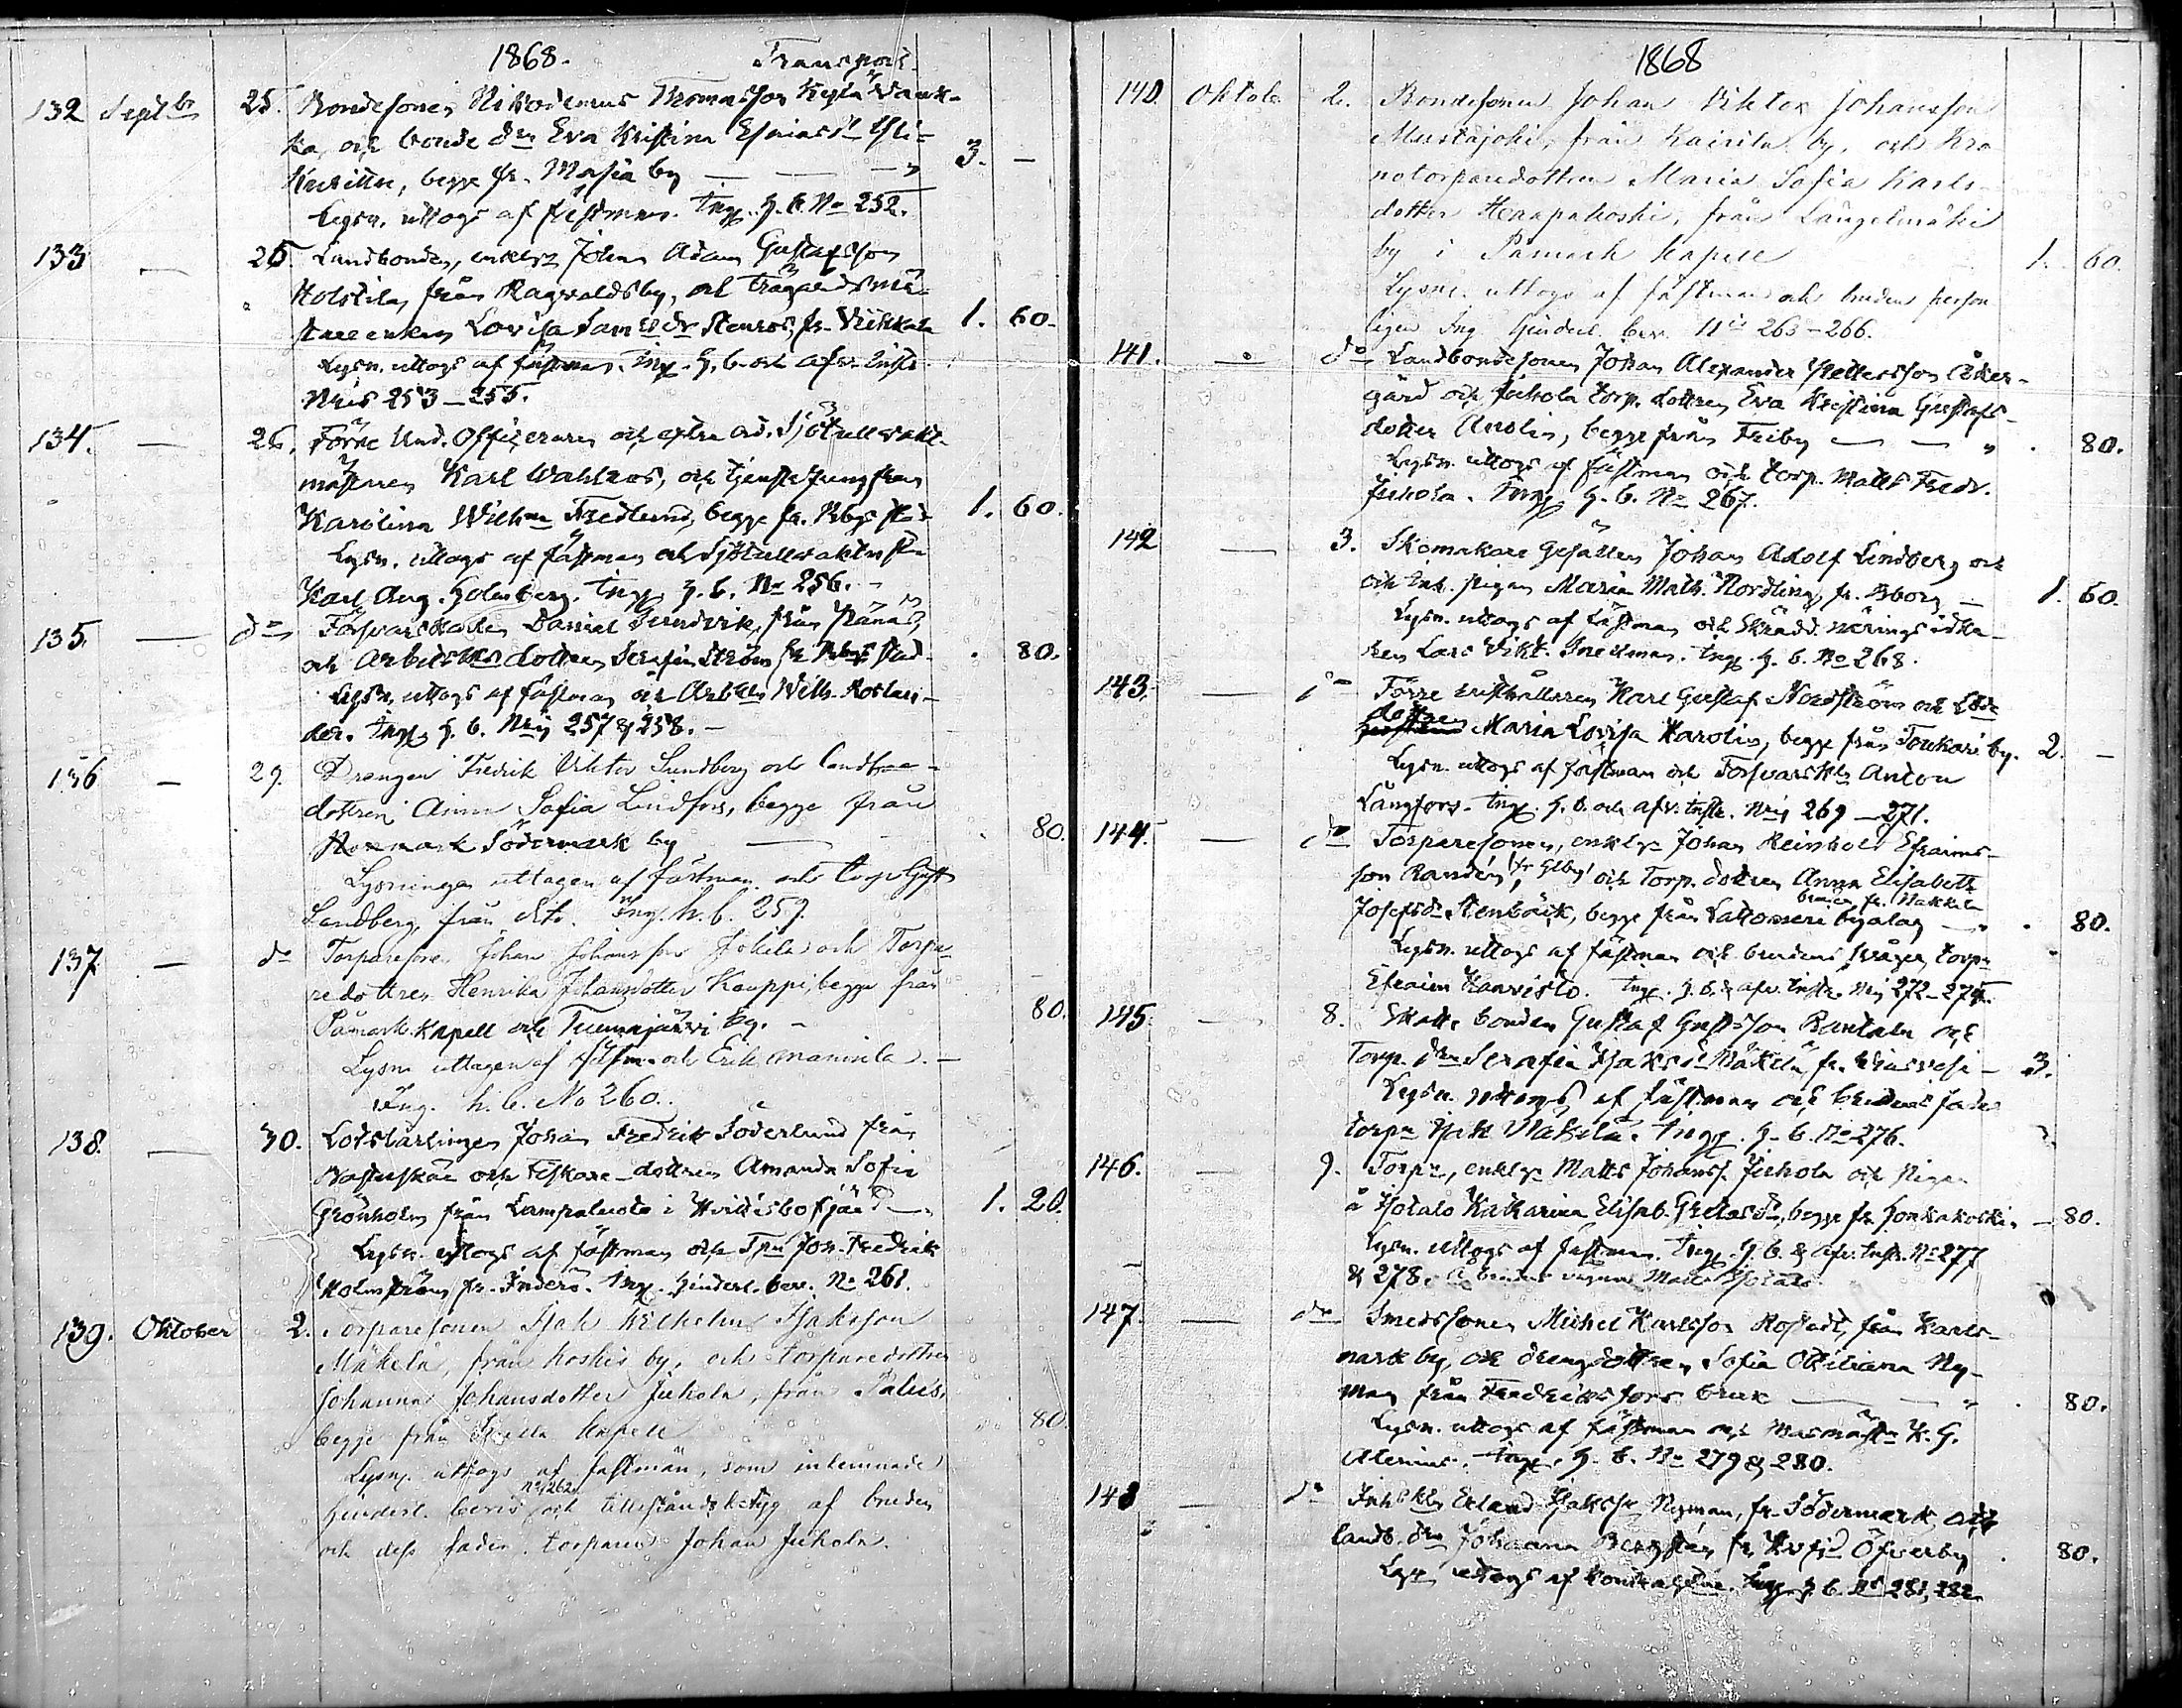 1868. Transport.
132 Septbr 25. Bondesonen Nikodemus Thomasson
ka, och bonde dn Eva Kristina Esaiasdr Yli-
begge fr. by — — 3. —
Lysn. uttogs af fästman. Ing. h. b. No 252.
133 — 25. Landbonden, enkl. Johan Adam Gustafsson
Holstila, från Ragvaldsby, och Trägårdsmä-
stareenkan Lovisa Sam. dr Stenros, fr. Vikkala 1. 60.
Lysn. uttogs af fästman. Ing. h. b. och afv. inst.
Nris 253–255.
134. — 26. Förre Und. Officeraren och extra ord. Sjötullvakt-
mästaren Karl Wahlroos, och tjenstejungfrun
Karolina Wilhna Fredlund, begge fr. Bbgs stad 1. 60.
Lysn. uttogs af fästman och Sjötullvaktmst.
Karl Aug. Holmberg. Ing. h. b. No 256. –
135. — do Försvarskarlen Daniel Sundvik, från Räfsö,
och Arbetsks dottren Serafia Ström fr Bbgs stad . 80.
Lysn. uttogs af fästman och Arbkln Wilh. Roslan-
der. Ing. h. b. Nris 257 & 258. –
136. — 29. Drängen Fredrik Viktor Sundberg och landbo-
dottren Anna Sofia Lindfors, begge från
Norrmark Södermark by — . 80.
Lysningen uttagen af fästman och torp. Gust.
Sandberg, från dito. Ing. h. b. 259.
137. — do Torparesonen Johan Johansson Jokela och Torpa-
redottren Henrika Johansdotter Kauppi, begge från
Påmark Kapell och Tuunajärvi by. – 80.
Lysn. uttagen af fästm. och Erik Mannila. –
Ing. h. b. No 260.
138. — 30. Lotslärlingen Johan Fredrik Söderlund från
och Fiskare-dottren Amanda Sofia
Grönholm från Lampaluoto i Hvittisbofjärd — 1. 20.
Lysn. uttogs af fästman och Joh. Fredrik
Holmström fr. Inderö. Ing. hinderl. bev. No 261.
139. Oktober 2. Torparesonen Isak Wilhelm Isaksson
Mäkelä, från Koskis by, och torparedottren
Johanna Johansdotter Juhola, från Palus,
begge från Ulfila Kapell „ 80.
Lysn. uttogs af fästman, som inlemnade
hinderl. bevis No 262 och tillståndsbetyg af bruden
och dess fader torparen Johan Juhola.
1868
140. Oktob. 2. Bondesonen Johan Viktor Johansson
Mustajoki, från Kairila by, och Kro-
notorparedottren Maria Sofia Karls-
dotter Haapakoski, från Längelmäki
by i Påmark Kapell 1. 60.
Lysn. uttogs af fästman och bruden person-
ligen. Ing. hinderl. bev. Nris 263–266.
141. — do Landbondesonen Johan Alexander Åker-
gård och Juhola torp. dottren Eva Kristina Gustafs-
dotter Anolin, begge från Friby — — „ . 80.
Lysn. uttogs af fästman och torp. Matts Fredr.
Juhola. Ing. h. b. No 267.
142 — 3. Skomakare Gesällen Johan Adolf Lindberg och
och Inh. pigan Maria Math. Nordling, fr. Bborg — 1. 60.
Lysn. uttogs af fästman och Skrädd. näringsidka-
ren Lars Vikt. Snellman. Ing. h. b. No 268.
143. — do Förre kusthållaren Karl Gustaf Nordström och
dottren Maria Lovisa Karolin, begge från Toukari by. 2. –
Lysn. uttogs af fästman och Försvarskln Anton
Långfors. Ing. h. b. och afv. inst. Nris 269–271.
144. — do Torparesonen, enkl. Johan Reinhold Efraims-
son Randén, fr Glby, och Torp. dottren Anna Elisabeth
bruden fr. Nakkila
Josefsdr Stenbäck, begge från Lattomeri byalag — . 80.
Lysn. uttogs af fästman och brudens svåger, torpn
Efraim Kanvisto. Ing. h. b. & afv. inst. Nris 272–275.
145. — 8. Skatte bonden Gustaf Gustsson Rantala och
Torp. dtrn Serafia Isaksdr Mäkelä, fr. — 3.
Lysn. uttogs af fästman och brudens fader
torpn Isak Mäkelä. Ing. h. b. No 276.
146. — 9. Torpn, enkl. Matts Johanss. Juhola och Pigan
å Isotalo Katharina Elisab. dr, begge fr. Honkakoski. — 80.
Lysn. uttogs af fästman. Ing. h. b. & afv. inst. No 277
& 278. Matts Isotalo.
147. — do Smedssonen Michel Karlsson Rostedt, från Karls-
mark by, och drengdottren Sofia Ottiliana Ny-
man från Fredriksfors bruk — — „ . 80.
Lysn. uttogs af fästman och Masmästn K. G.
Alenius. Ing. h. b. No 279 & 280.
148 — do Erland Isakss. Nyman, fr. Södermark och
landb. drn Johanna Bergstén, fr Öfverby . 80.
Lysn. uttogs af kontrahterne. Ing. h. b. No 281, 282.